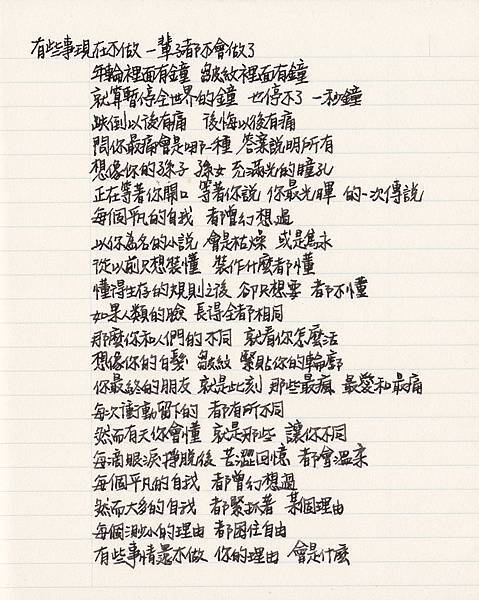 有些事現在不做 一輩子都不會做了
年輪裡面有鐘 皺紋裡面有鐘
就算暫停全世界的鐘 也停不了 一秒鐘
跌倒以後有痛 後悔以後有痛
問你最痛會是哪一種 答案說明所有
想像你的孫子 孫女 充滿光的瞳孔
正在等著你開口 等著你說 你最光暉 的一次傳說
每個平凡的自我 都曾幻想過
以你為名的小說 會是枯燥 或是雋永
從以前只想裝懂 裝作什麼都懂
懂得生存的規則之後 卻只想要 都不懂
如果人類的臉 長得全都相同
那麼你和人們的不同 就看你怎麼活
想像你的白髮 皺紋 緊貼你的輪廓
你最終的朋友 就是此刻 那些最瘋 最愛和最痛
每次衝動留下的 都有所不同
然而有天你會懂 就是那些 讓你不同
每滴眼淚掙脫後 苦澀回憶 都會溫柔
每個平凡的自我 都曾幻想過
然而大多的自我 都緊抓著 某個理由
每個渺小的理由 都困住自由
有些事情還不做 你的理由 會是什麼